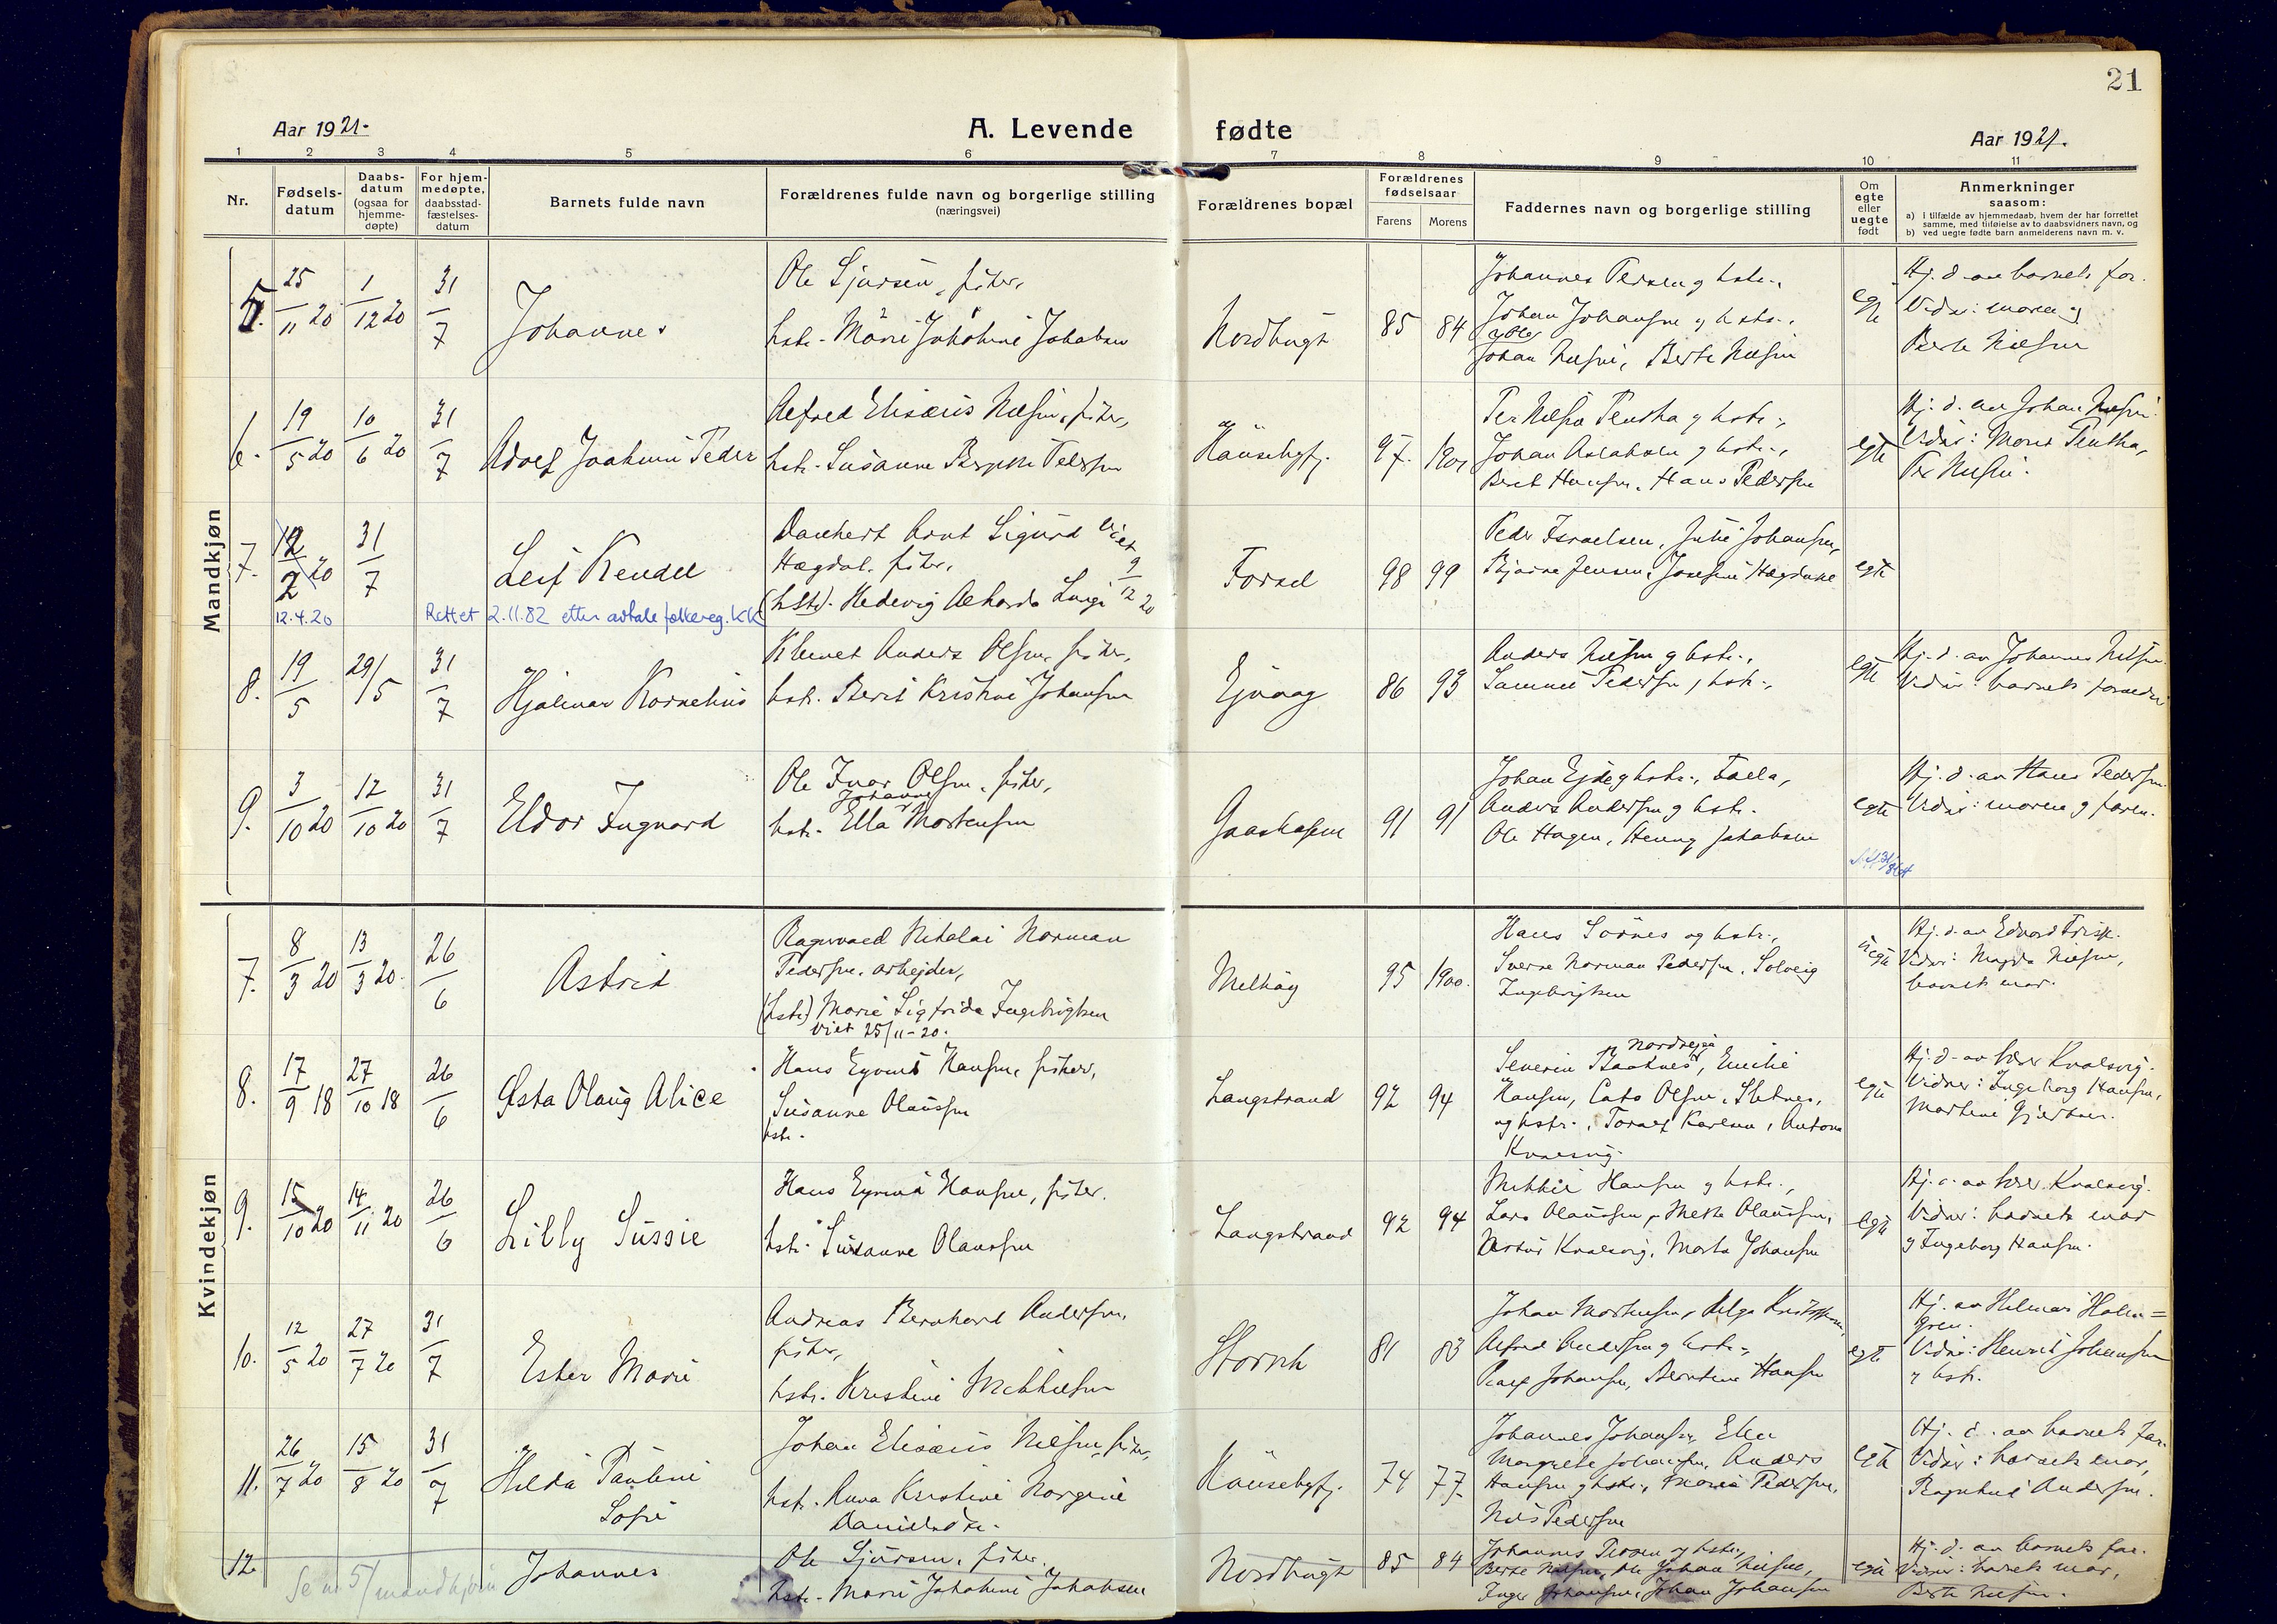 21
Aar 1921.
A. Levende fødte
Aar 1921.
1 2 3 4 5 6 7 8 9 10 11
Nr.
Fødsels-
datum
Daabs-
datum
(ogsaa for
hjemme-
døpte)
For hjem-
medøpte,
daabsstad-
fæstelses-
datum
Barnets fulde navn
Forældrenes fulde navn og borgerlige stilling
(næringsvei)
Forældrenes bopæl
Forældrenes
fødselsaar
Farens Morens
Faddernes navn og borgerlige stilling
Om
egte
eller
uegte
født
Anmerkninger
saasom:
a) i tilfælde av hjemmedaab, hvem der har forrettet
samme, med tilføielse av to daabsvidners navn, og
b) ved uegte fødte barn anmelderens navn m. v.
Mandkjøn
5. 25/11 20 1/12 20 31/7
Johannes
Ole Sjursen, fisker,
hstr. Marie Johanne Jakobsen
Nordbugt
85 84
Johannes Persen og hstr.,
Johan Johansen og hstr.,
Johan Nilsen, Berte Nilsen
egte
Hj. d. av barnets far.
Vidner: moren og
Berte Nilsen
6. 19/5 20 10/6 20 31/7
Adolf Joakim Peder
Alfred Elisæus Nilsen, fisker,
hstr. Susanne Pedersen
97. 1901
Per Nilsen Pentha og hstr.,
Johan og hstr.,
Berit Hansen, Hans Pedersen
egte
Hj. d. av Johan Nilsen.
Vidner: Marie Pentha,
Per Nilsen.
7. 12/2 20 31/7
12.4.20
Leif Kendel
Rettet 2.11.82 etter avtale folkereg. KK
Arnt Sigurd
Hægdal, fisker,
viet 9/12 20
(hstr). Hedevig
98 99
Peder Israelsen, Julie Johansen,
Bjarne Jensen, Josefine
egte
8. 19/5 29/5 31/7
Hjalmar Kornelius
Klemet Anders Olsen, fisker,
hstr. Berit Kristine Johansen
86 93
Anders Nilsen og hstr.,
Samuel Pedersen, hstr.,
egte
Hj. d. av Johannes Nilsen.
Vidner: barnets forældre
9. 3/10 20 12/10 20 31/7
Eldor Ingvard
Ole Ivar Olsen, fisker,
Johanne
hstr. Ella Mortensen
91 91
Johan Ejde og hstr.,
Anders Andersen og hstr.
Ole Hagen, Henny Jakobsen
egte
Hj. d. av Hans Pedersen.
Vidner: moren og faren.
Kvindekjøn
7. 8/3 20 13/3 20. 26/6
Astrid
Ragnvald Nikolai Norman
Pedersen, arbejder,
(hstr.) Marie Sigfrida Ingebrigtsen
viet 25/11-20.
Melkøy
95 1900.
Hans Sørnes og hstr.,
Sverre Norman Pedersen, Solveig
Ingebrigtsen
uegte
Hj. d. av Edvard Frisk.
Vidner: Magda Nilsen,
barnets mor.
8. 17/9 18 27/10 18 26/6
Østa Olaug Alice
Hans Eyvind Hansen, fisker,
Susanne Olaussen
hstr.
Langstrand
92 94
Nordvejen
Severin Baaknes, Emilie
Hansen, Cato Olsen, Sletnes,
og hstr., Toralf Karlsen, Antona
Kvalsvig.
egte
Hj. d. av Kvalsvig.
Vidner: Ingeborg Hansen,
Martine
9. 15/10 20 14/11 20 26/6
Lilly Sussie
Hans Eyvind Hansen, fisker.
hstr. Susanne Olaussen
Langstrand
92 94
Mikkel Hansen og hstr.,
Lars Olaussen, Olaussen,
Kvalsvig, Marta Johansen
egte
Hj. d. av Kvalsvig.
Vidner: barnets mor
og Ingeborg Hansen.
10. 12/5 20 27/7 20 31/7
Ester Marie
Andreas Bernhard Andersen,
fisker,
hstr. Kristine Mikkelsen
81 83
Johan Mortensen, Helga
Alfred Andersen og hstr.,
Johansen, Berntine Hansen
egte
Hj. av Hilmar Holm=
gren.
Vidner: Henrik Johansen
og hstr.
11. 26/7 20 15/8 20 31/7
Hilda Pauline
Sofie
Johan Elisæus Nilsen, fisker,
hstr. Anna Kristine Norgine
Danielsdtr.
74 77.
Johannes Johansen, Ellen
Margrete Johansen, Anders
Hansen og hstr., Maria Pedersen,
Nils Pedersen
egte
Hj. d. av barnets far.
Vidner: barnets mor,
Ragnhild Andersen.
12.
Se nr 5/mandkjøn
Johannes
Ole Sjursen, fisker.
hstr. Marie Johanne Jakobsen
Nordbugt
85 84
Johannes Persen og hstr.,
Berte Nilsen, Ole Johan Nilsen,
Inger Johansen, Johan Johansen
egte
Hj. d. av barnets far.
Vidner: barnets mor,
Berte Nilsen.